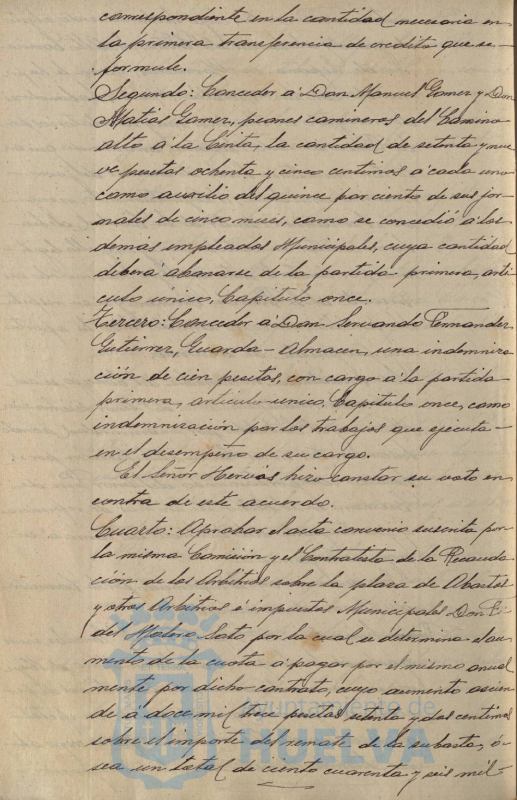 correspondiente en la cantidad necesaria en
la primera transferencia de credito que se
formule.
Segundo: Conceder á Don Manuel Gomez y Don
Matias Gomez, peones camineros del Camino
alto á la Cinta, la cantidad de setenta y nue
ve pesetas ochenta y cinco centimos á cada uno
como auxilio del quince por ciento de sus jor-
nales de cinco meses, como se concedió á los
demás empleados Municipales, cuya cantidad
deberá abonarse de la partida primera, arti-
culo único, Capitulo once.
Tercero: Conceder á Don Servando Fernandez
Gutierrez, Guarda-Almacen, una indemniza
ción de cien pesetas, con cargo á la partida
primera, articulo unico, Capitulo once, como
indemnización por los trabajos que ejecuta
en el desempeño de su cargo.
El Señor Hervás hizo constar su voto en
contra de este acuerdo.
Cuarto: Aprobar el acta convenio suscrita por
la misma Comisión y el Contratista de la Recauda
ción de los Arbitrios sobre la plaza de Abastos
y otros Arbitrios é impuestos Municipales Don
del Molino Soto por la cual se determina el au
mento de la cuota á pagar por el mismo anual
mente por dicho contrato, cuyo aumento ascien
de á doce mil trece pesetas setenta y dos centimos
sobre el importe del remate de la subasta, ó
sea un total de ciento cuarenta y seis mil
ayuntamiento de
HUELVA